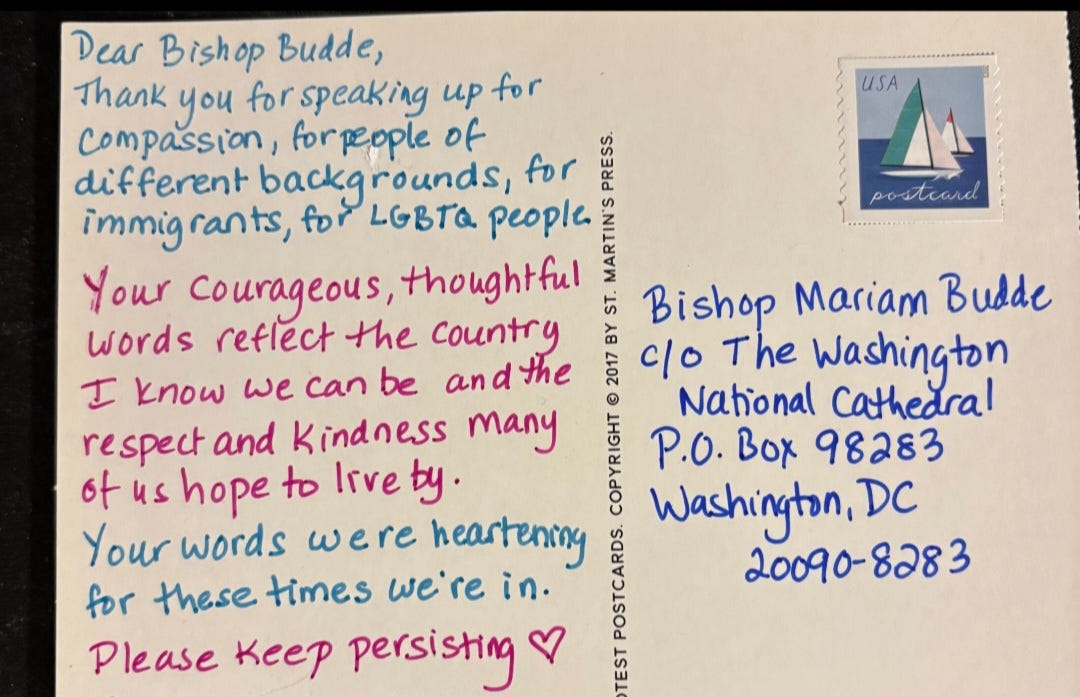 Dear Bishop Budde,
Thank you for speaking up for
compassion, for people of
different backgrounds, for
immigrants, for LGBTQ people.
Your courageous, thoughtful
words reflect the country
I know we can be and the
respect and kindness many
of us hope to live by.
Your words were heartening
for these times we're in.
Please keep persisting ♡
TEST POSTCARDS. COPYRIGHT © 2017 BY ST. MARTIN'S PRESS.
USA
postcard
Bishop Mariam Budde
c/o The Washington
National Cathedral
P.O. Box 98283
Washington, DC
20090-8283